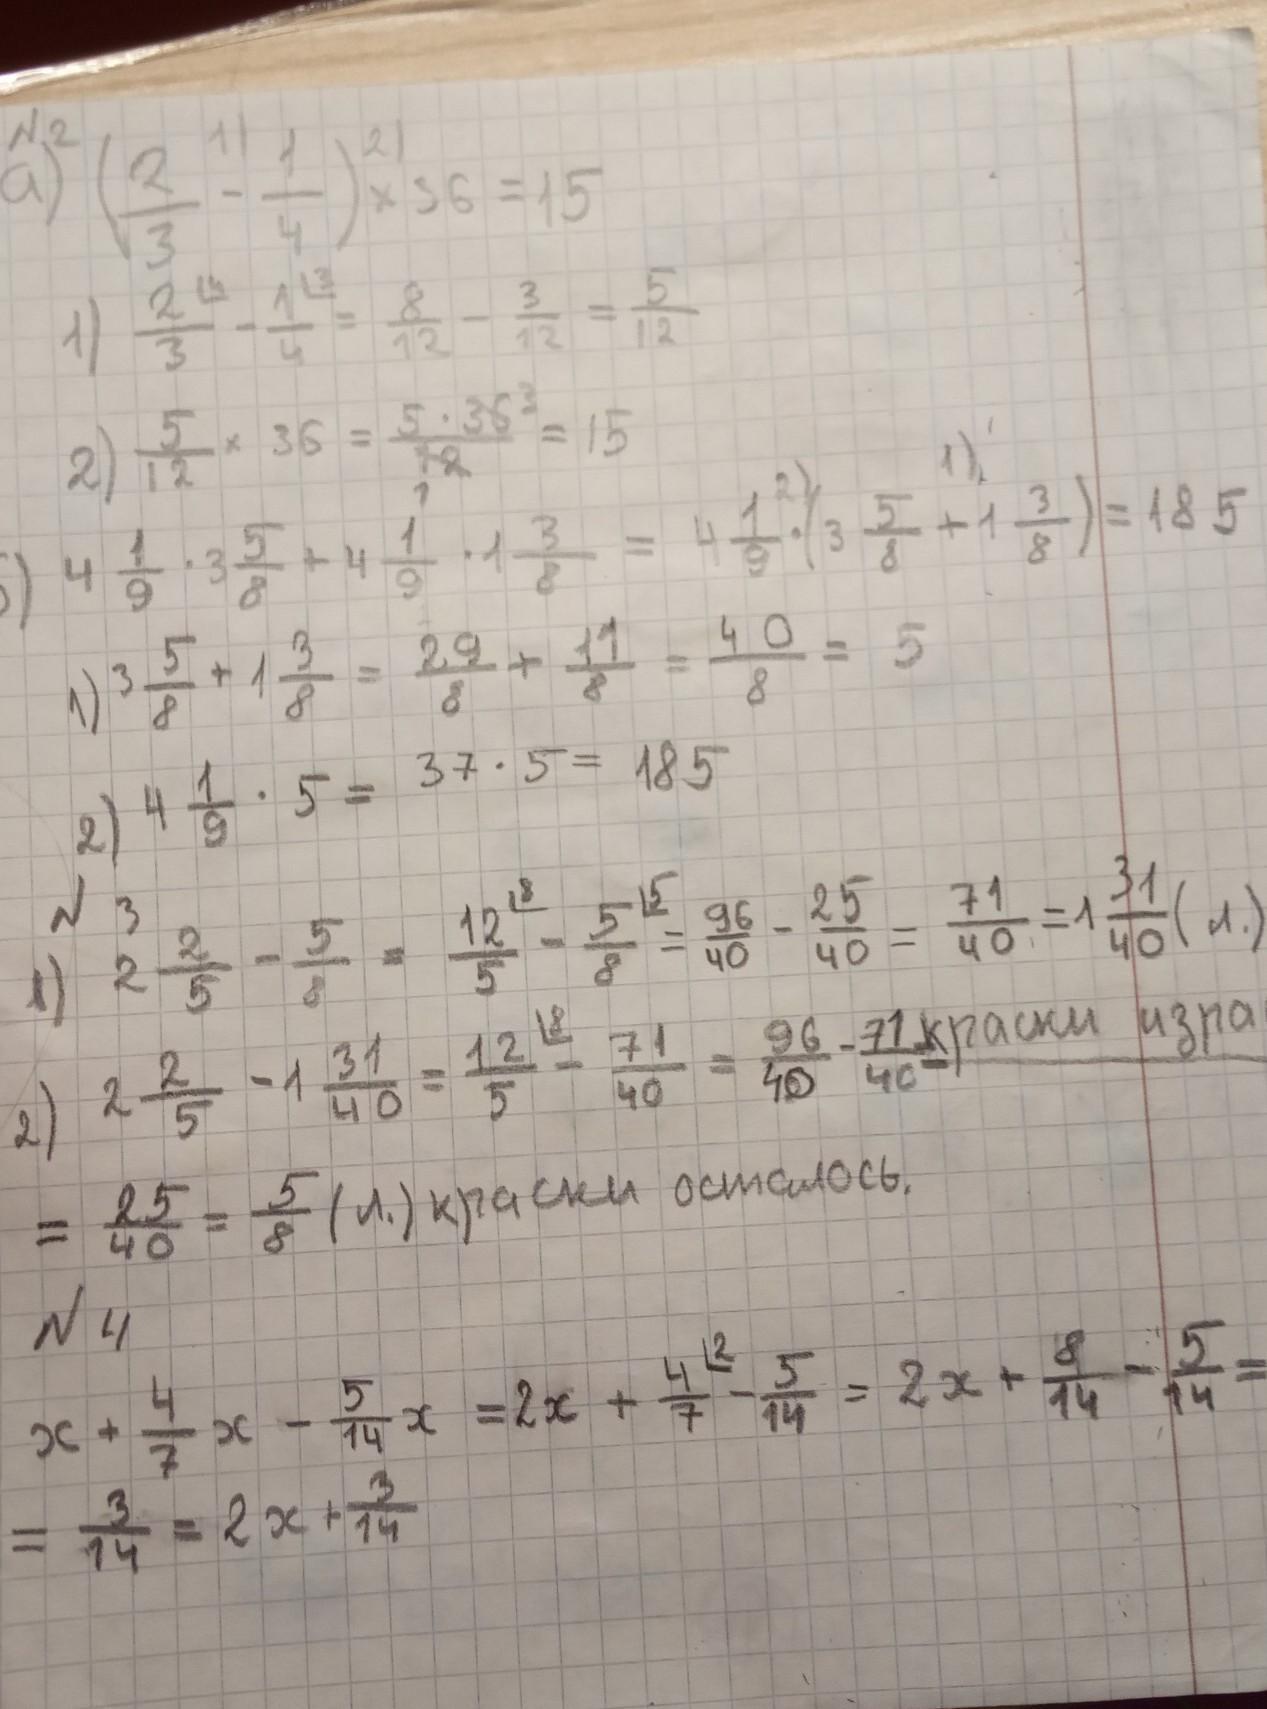 №2
а) (2/3 - 1/4) × 36 = 15
1) 2/3 - 1/4 = 8/12 - 3/12 = 5/12
2) 5/12 × 36 = 5 · 36/12 = 15
б) 4 1/9 · 3 5/8 + 4 1/9 · 1 3/8 = 4 1/9 · (3 5/8 + 1 3/8) = 185
1) 3 5/8 + 1 3/8 = 29/8 + 11/8 = 40/8 = 5
2) 4 1/9 · 5 = 37 · 5 = 185
N 3
1) 2 2/5 - 5/8 = 12/5 - 5/8 = 96/40 - 25/40 = 71/40 = 1 31/40 (л.)
краски изра
2) 2 2/5 - 1 31/40 = 12/5 - 71/40 = 96/40 - 71/40 =
= 25/40 = 5/8 (л.) краски осталось.
N 4
x + 4/7 x - 5/14 x = 2x + 4/7 - 5/14 = 2x + 8/14 - 5/14 =
= 3/14 = 2x + 3/14